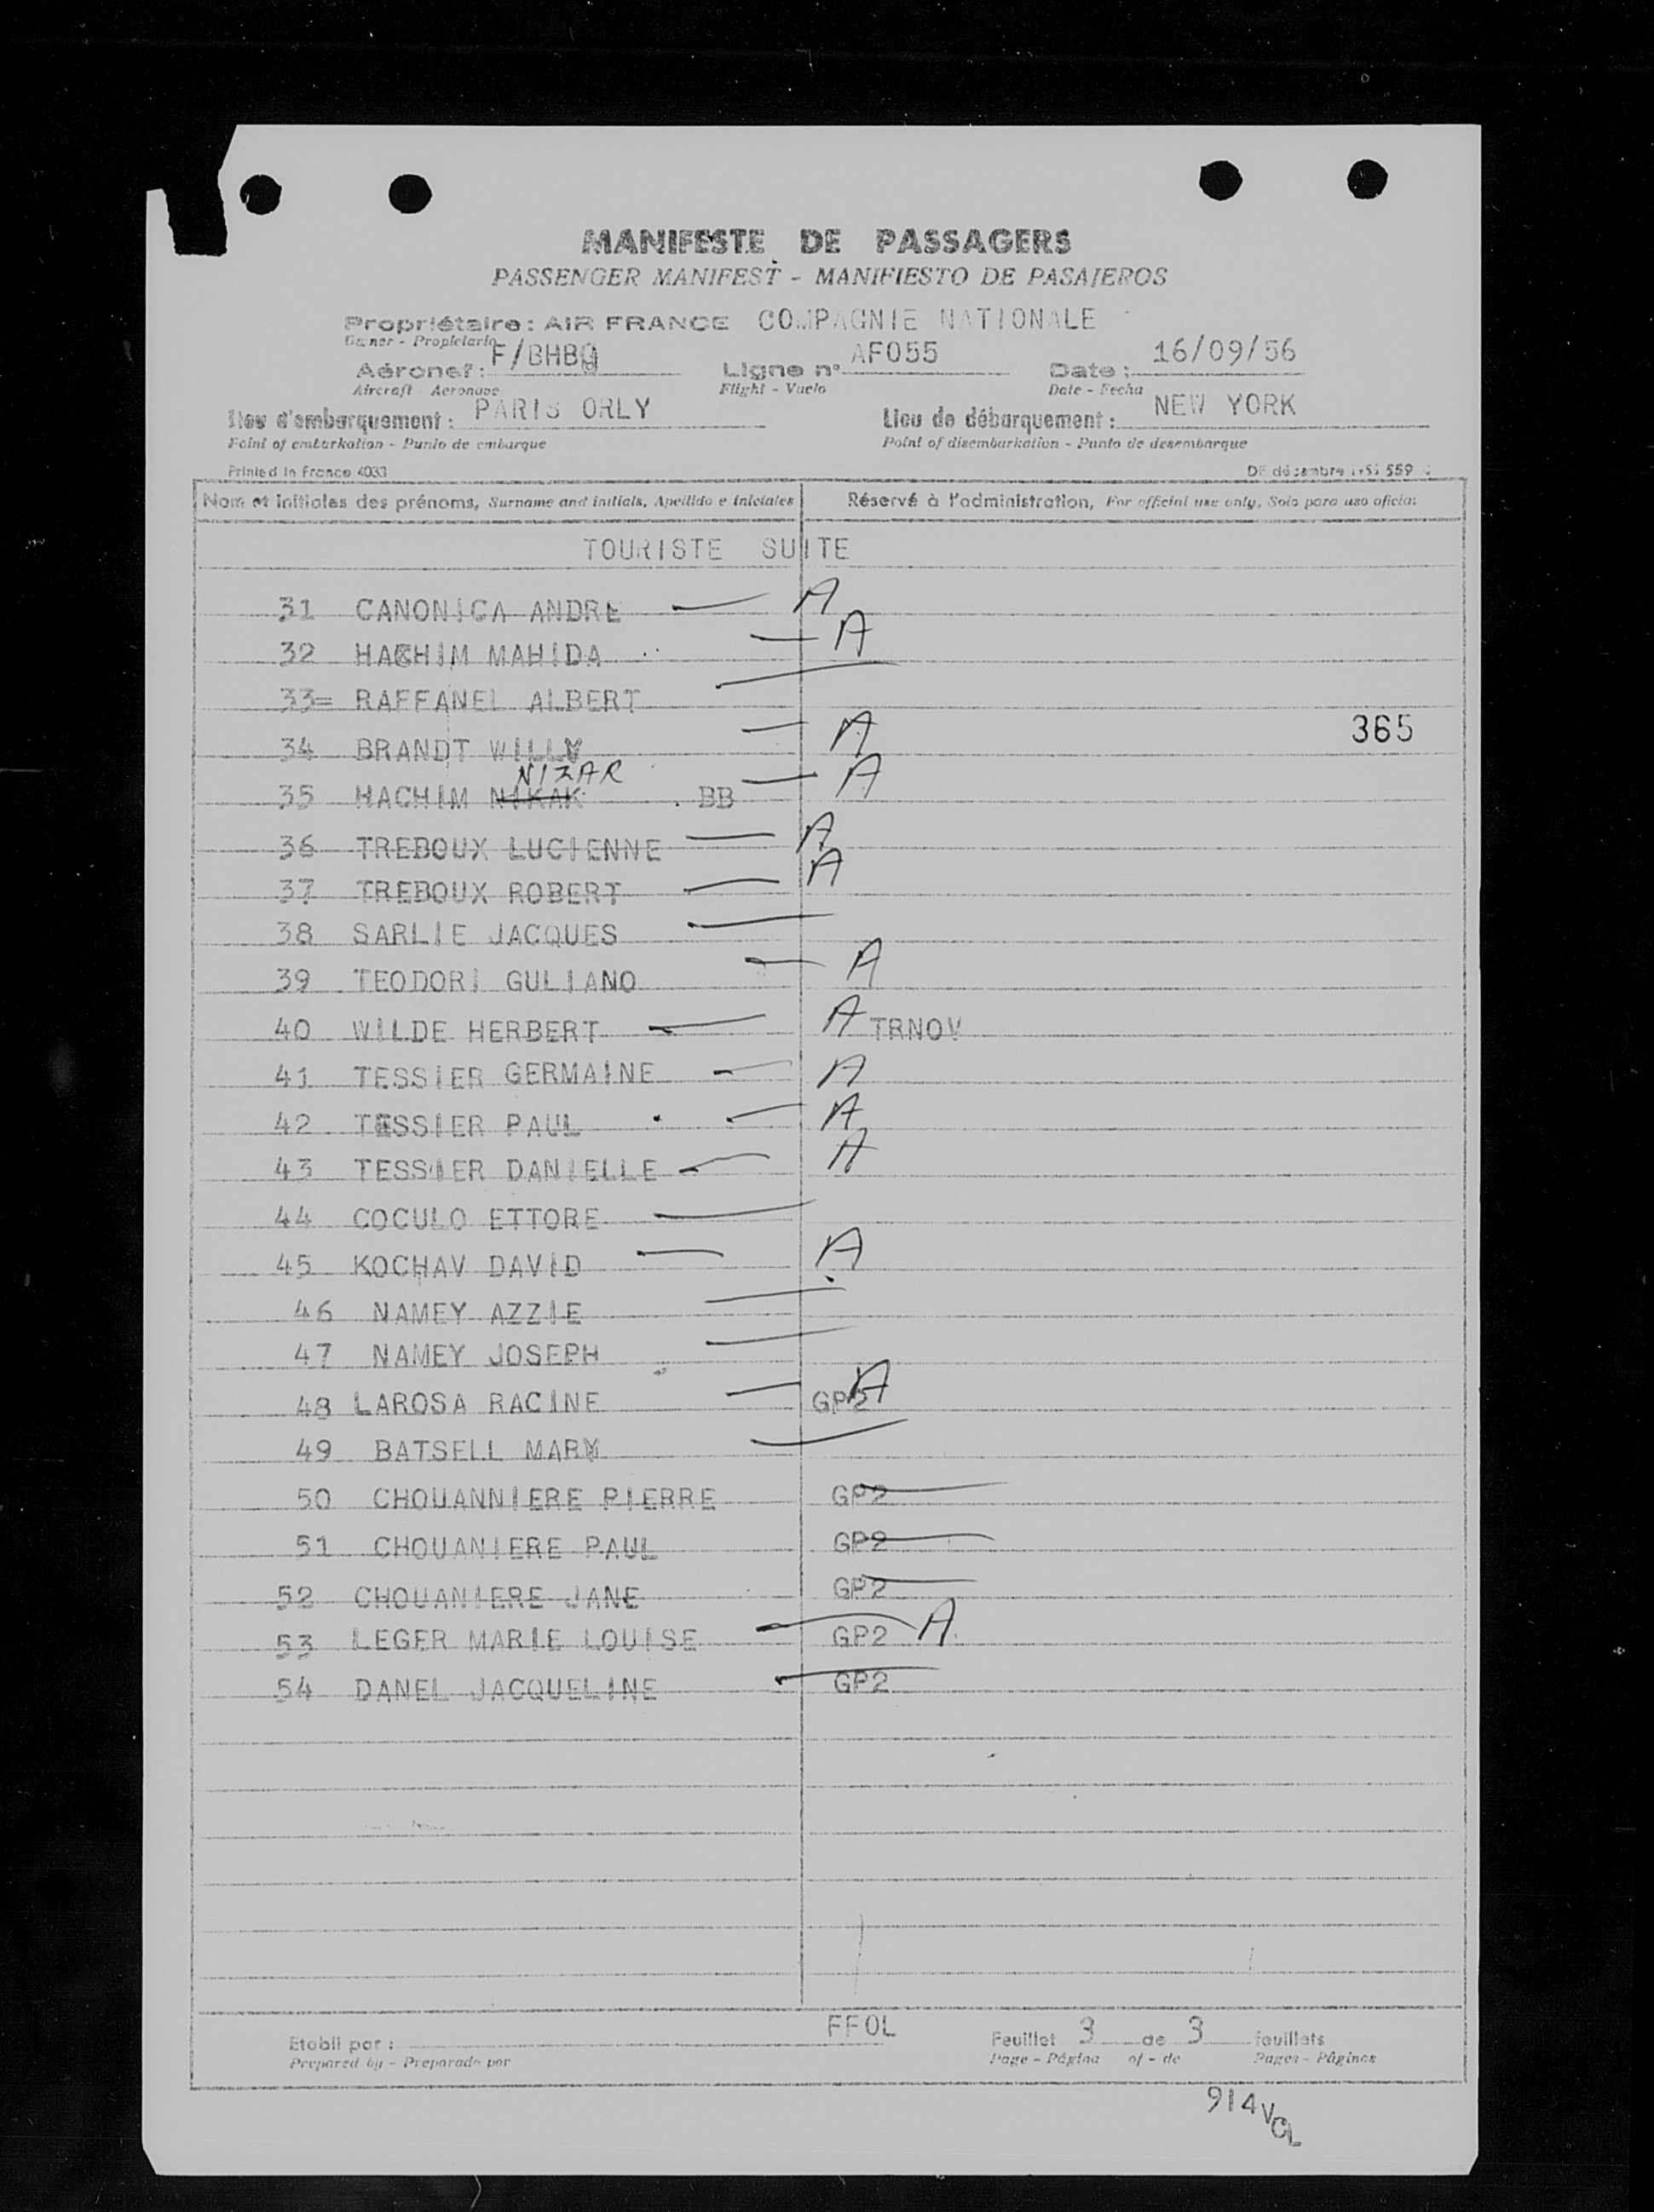 MANIFESTE DE PASSAGERS
PASSENGER MANIFEST - MANIFIESTO DE PASAJEROS
Propriétaire: AIR FRANCE COMPAGNIE NATIONALE
Owner - Propietario
Aéronef: F/BHBQ Ligne n° AF055 Date: 16/09/56
Aircraft - Aeronave Flight - Vuelo Date - Fecha
Lieu d'embarquement: PARIS ORLY Lieu de débarquement: NEW YORK
Point of embarkation - Punto de embarque Point of disembarkation - Punto de desembarque
Printed in France 4033 DE décembre 559
Nom et initiales des prénoms, Surname and initials, Apellido e iniciales Réservé à l'administration, For official use only, Solo para uso oficial
TOURISTE SUITE
31 CANONICA ANDRE A
32 HACHIM MAHIDA A
33= RAFFANEL ALBERT
34 BRANDT WILLY A 365
NIZAR
35 HACHIM NIKAK BB A
36 TREBOUX LUCIENNE A
37 TREBOUX ROBERT A
38 SARLIE JACQUES
39 TEODORI GULIANO A
40 WILDE HERBERT A TRNOV
41 TESSIER GERMAINE A
42 TESSIER PAUL A
43 TESSIER DANIELLE A
44 COCULO ETTORE
45 KOCHAV DAVID A
46 NAMEY AZZIE
47 NAMEY JOSEPH
48 LAROSA RACINE GP2 A
49 BATSELL MARY
50 CHOUANNIERE PIERRE GP2
51 CHOUANIERE PAUL GP2
52 CHOUANIERE JANE GP2
53 LEGER MARIE LOUISE GP2 A
54 DANEL JACQUELINE GP2
Etabli par: FFOL Feuillet 3 de 3 feuillets
Prepared by - Preparado por Page - Página of - de Pages - Páginas
914 VCL